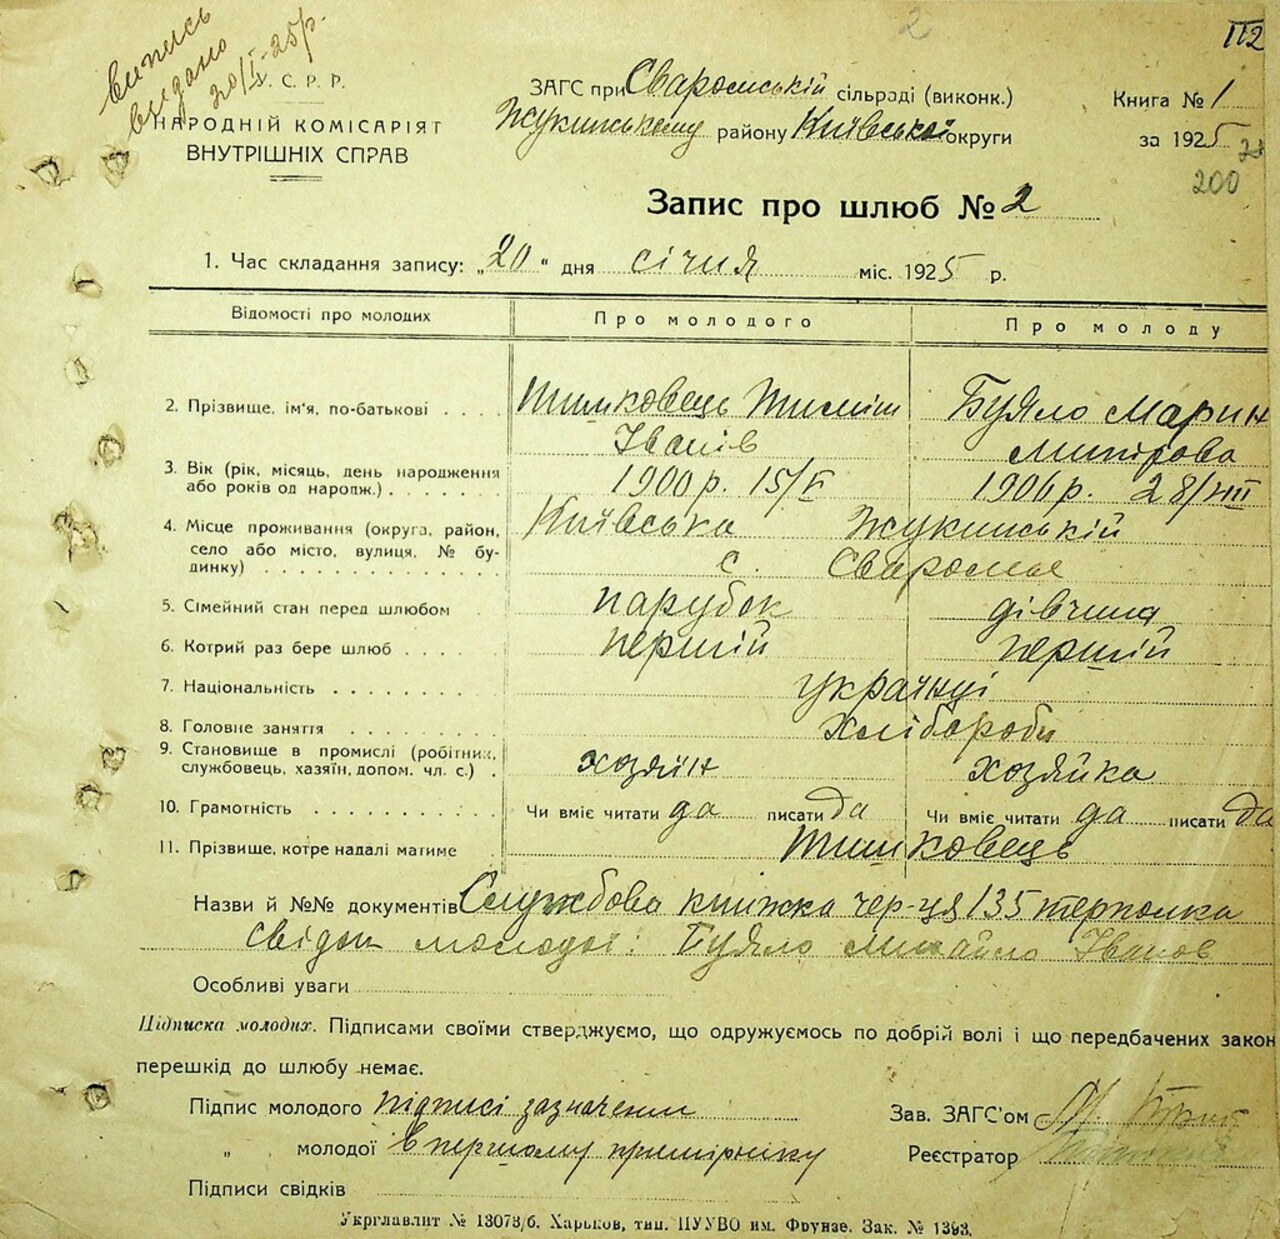 випись
видано
20/I-25р.
2
112
У.С.Р.Р.
НАРОДНІЙ КОМІСАРІЯТ
ВНУТРІШНІХ СПРАВ
ЗАГС при Сваромській сільраді (виконк.)
Жукинському району Київської округи
Книга № 1
за 1925
200
Запис про шлюб № 2
1. Час складання запису: „20“ дня січня міс. 1925 р.
Відомості про молодих Про молодого Про молоду
2. Прізвище, ім'я, по-батькові . . . . Тимковець Тиміш Буяло Марин
Іванів
3. Вік (рік, місяць, день народження або років од народж.) . . . . . . . 1900 р. 15/II 1906 р. 28/VII
4. Місце проживання (округа, район, село або місто, вулиця, № будинку) . . . . . . . . . . . . Київська Жукинській
с. Сваромля
5. Сімейний стан перед шлюбом парубок дівчина
6. Котрий раз бере шлюб . . . . . першій першій
7. Національність . . . . . . . . . українці
8. Головне заняття . . . . . . . . хлібороби
9. Становище в промислі (робітник, службовець, хазяїн, допом. чл. с.) . хозяїн хозяйка
10. Грамотність . . . . . . . . . . Чи вміє читати да писати да Чи вміє читати да писати да
11. Прізвище, котре надалі матиме Тимковець
Назви й №№ документів Службова книжка чер-ця 135 терполка
свідок молодої: Буяло Михайло Іванов
Особливі уваги
Підписка молодих. Підписами своїми стверджуємо, що одружуємось по добрій волі і що передбачених закон
перешкід до шлюбу немає.
Підпис молодого підписі зазначени
„ молодої в першому примірнику
Зав. ЗАГС'ом
Реєстратор
Підписи свідків
Укрглавліт № 13073/б. Харьков, тип. ПУУВО им. Фрунзе. Зак. № 1393.